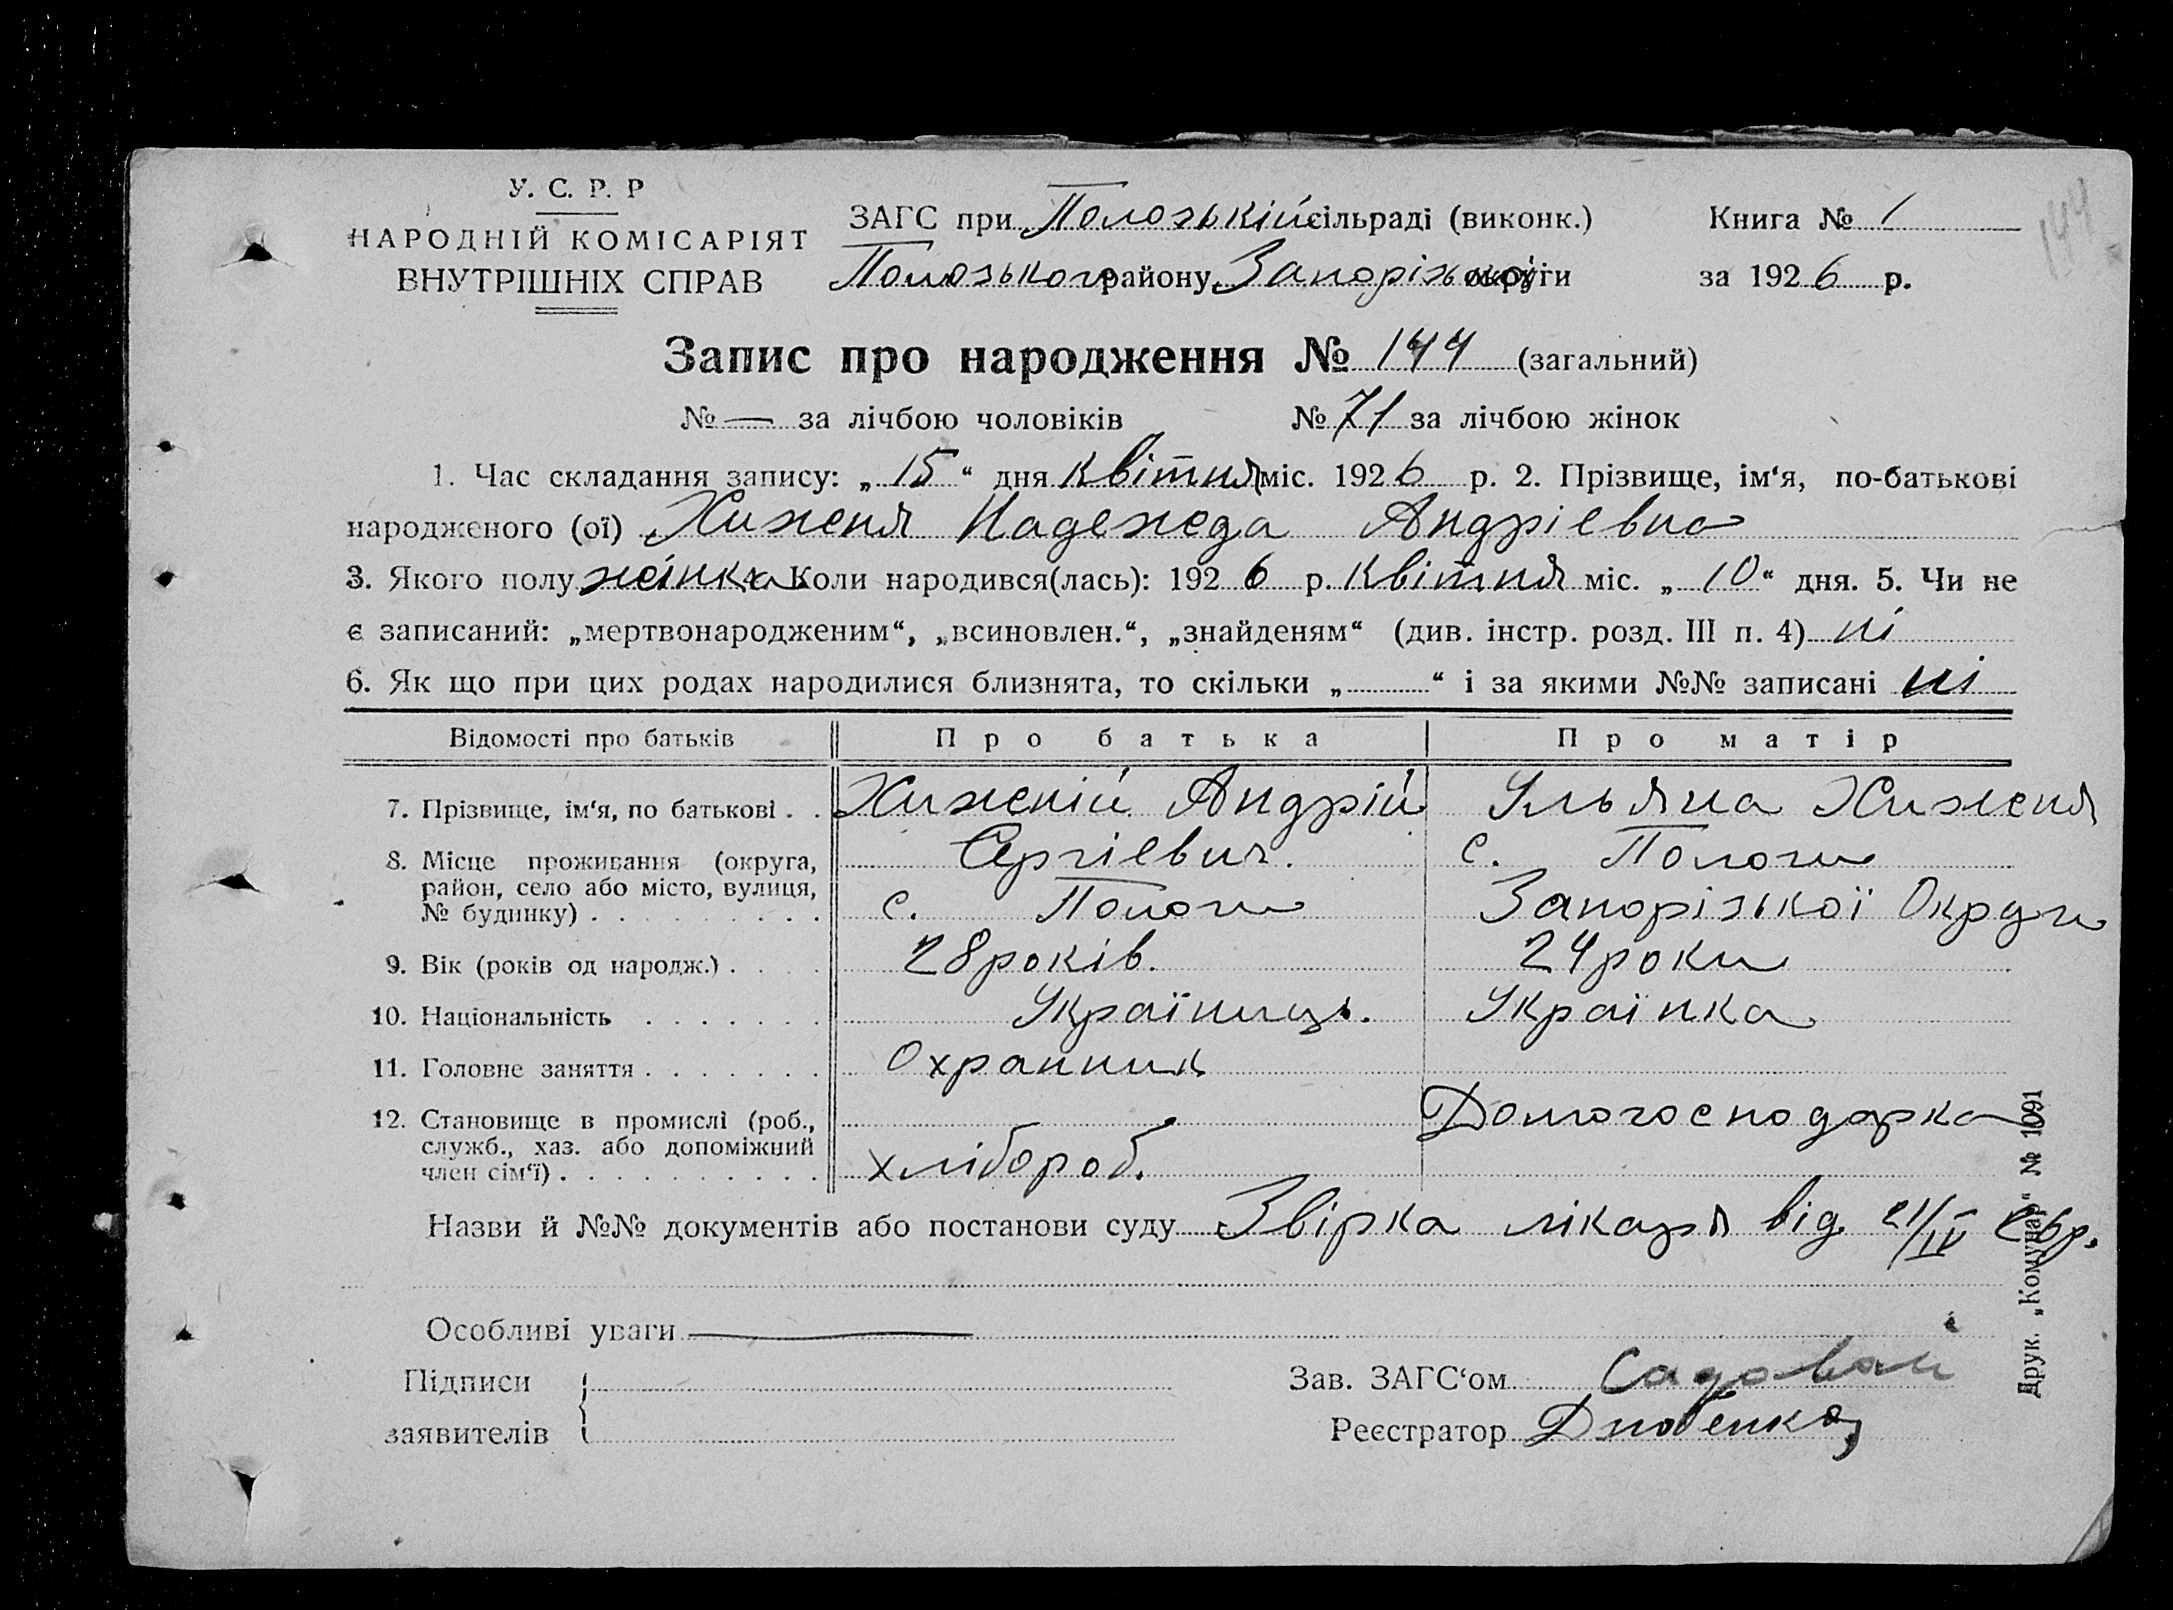 У. С. Р. Р
НАРОДНІЙ КОМІСАРІЯТ
ВНУТРІШНІХ СПРАВ
ЗАГС при Полозькій сільраді (виконк.) Книга № 1
144
Полозького району Запорізької округи за 1926 р.
Запис про народження № 144 (загальний)
№ — за лічбою чоловіків № 71 за лічбою жінок
1. Час складання запису: „15“ дня квітня міс. 1926 р. 2. Прізвище, ім‘я, по-батькові
народженого (ої) Хиженя Надежда Андріевна
3. Якого полу жінка Коли народився(лась): 1926 р. квітня міс. „10“ дня. 5. Чи не
є записаний: „мертвонародженим“, „всиновлен.“, „знайденям“ (див. інстр. розд. III п. 4) ні
6. Як що при цих родах народилися близнята, то скільки „ “ і за якими №№ записані ні
Відомості про батьків Про батька Про матір
7. Прізвище, ім‘я, по батькові . . Хиженій Андрій Ульяна Хиженя
Сергіевич. с. Пологи
8. Місце проживання (округа, район, село або місто, вулиця, № будинку) . . . . . . . . . с. Пологи Запорізької Округи
9. Вік (років од народж.) . . . . 28 років. 24 роки
10. Національність . . . . . . . Українець. Українка
11. Головне заняття . . . . . . . Охранник
12. Становище в промислі (роб., служб., хаз. або допоміжний член сім‘ї) . . . . . . . . . . хлібороб. Домогосподарка
Назви й №№ документів або постанови суду Звірка лікаря від 21/IV 26р.
Особливі уваги —
Підписи
заявителів
Зав. ЗАГС‘ом Садовай
Реєстратор
Друк. „Комунар“ № 1091